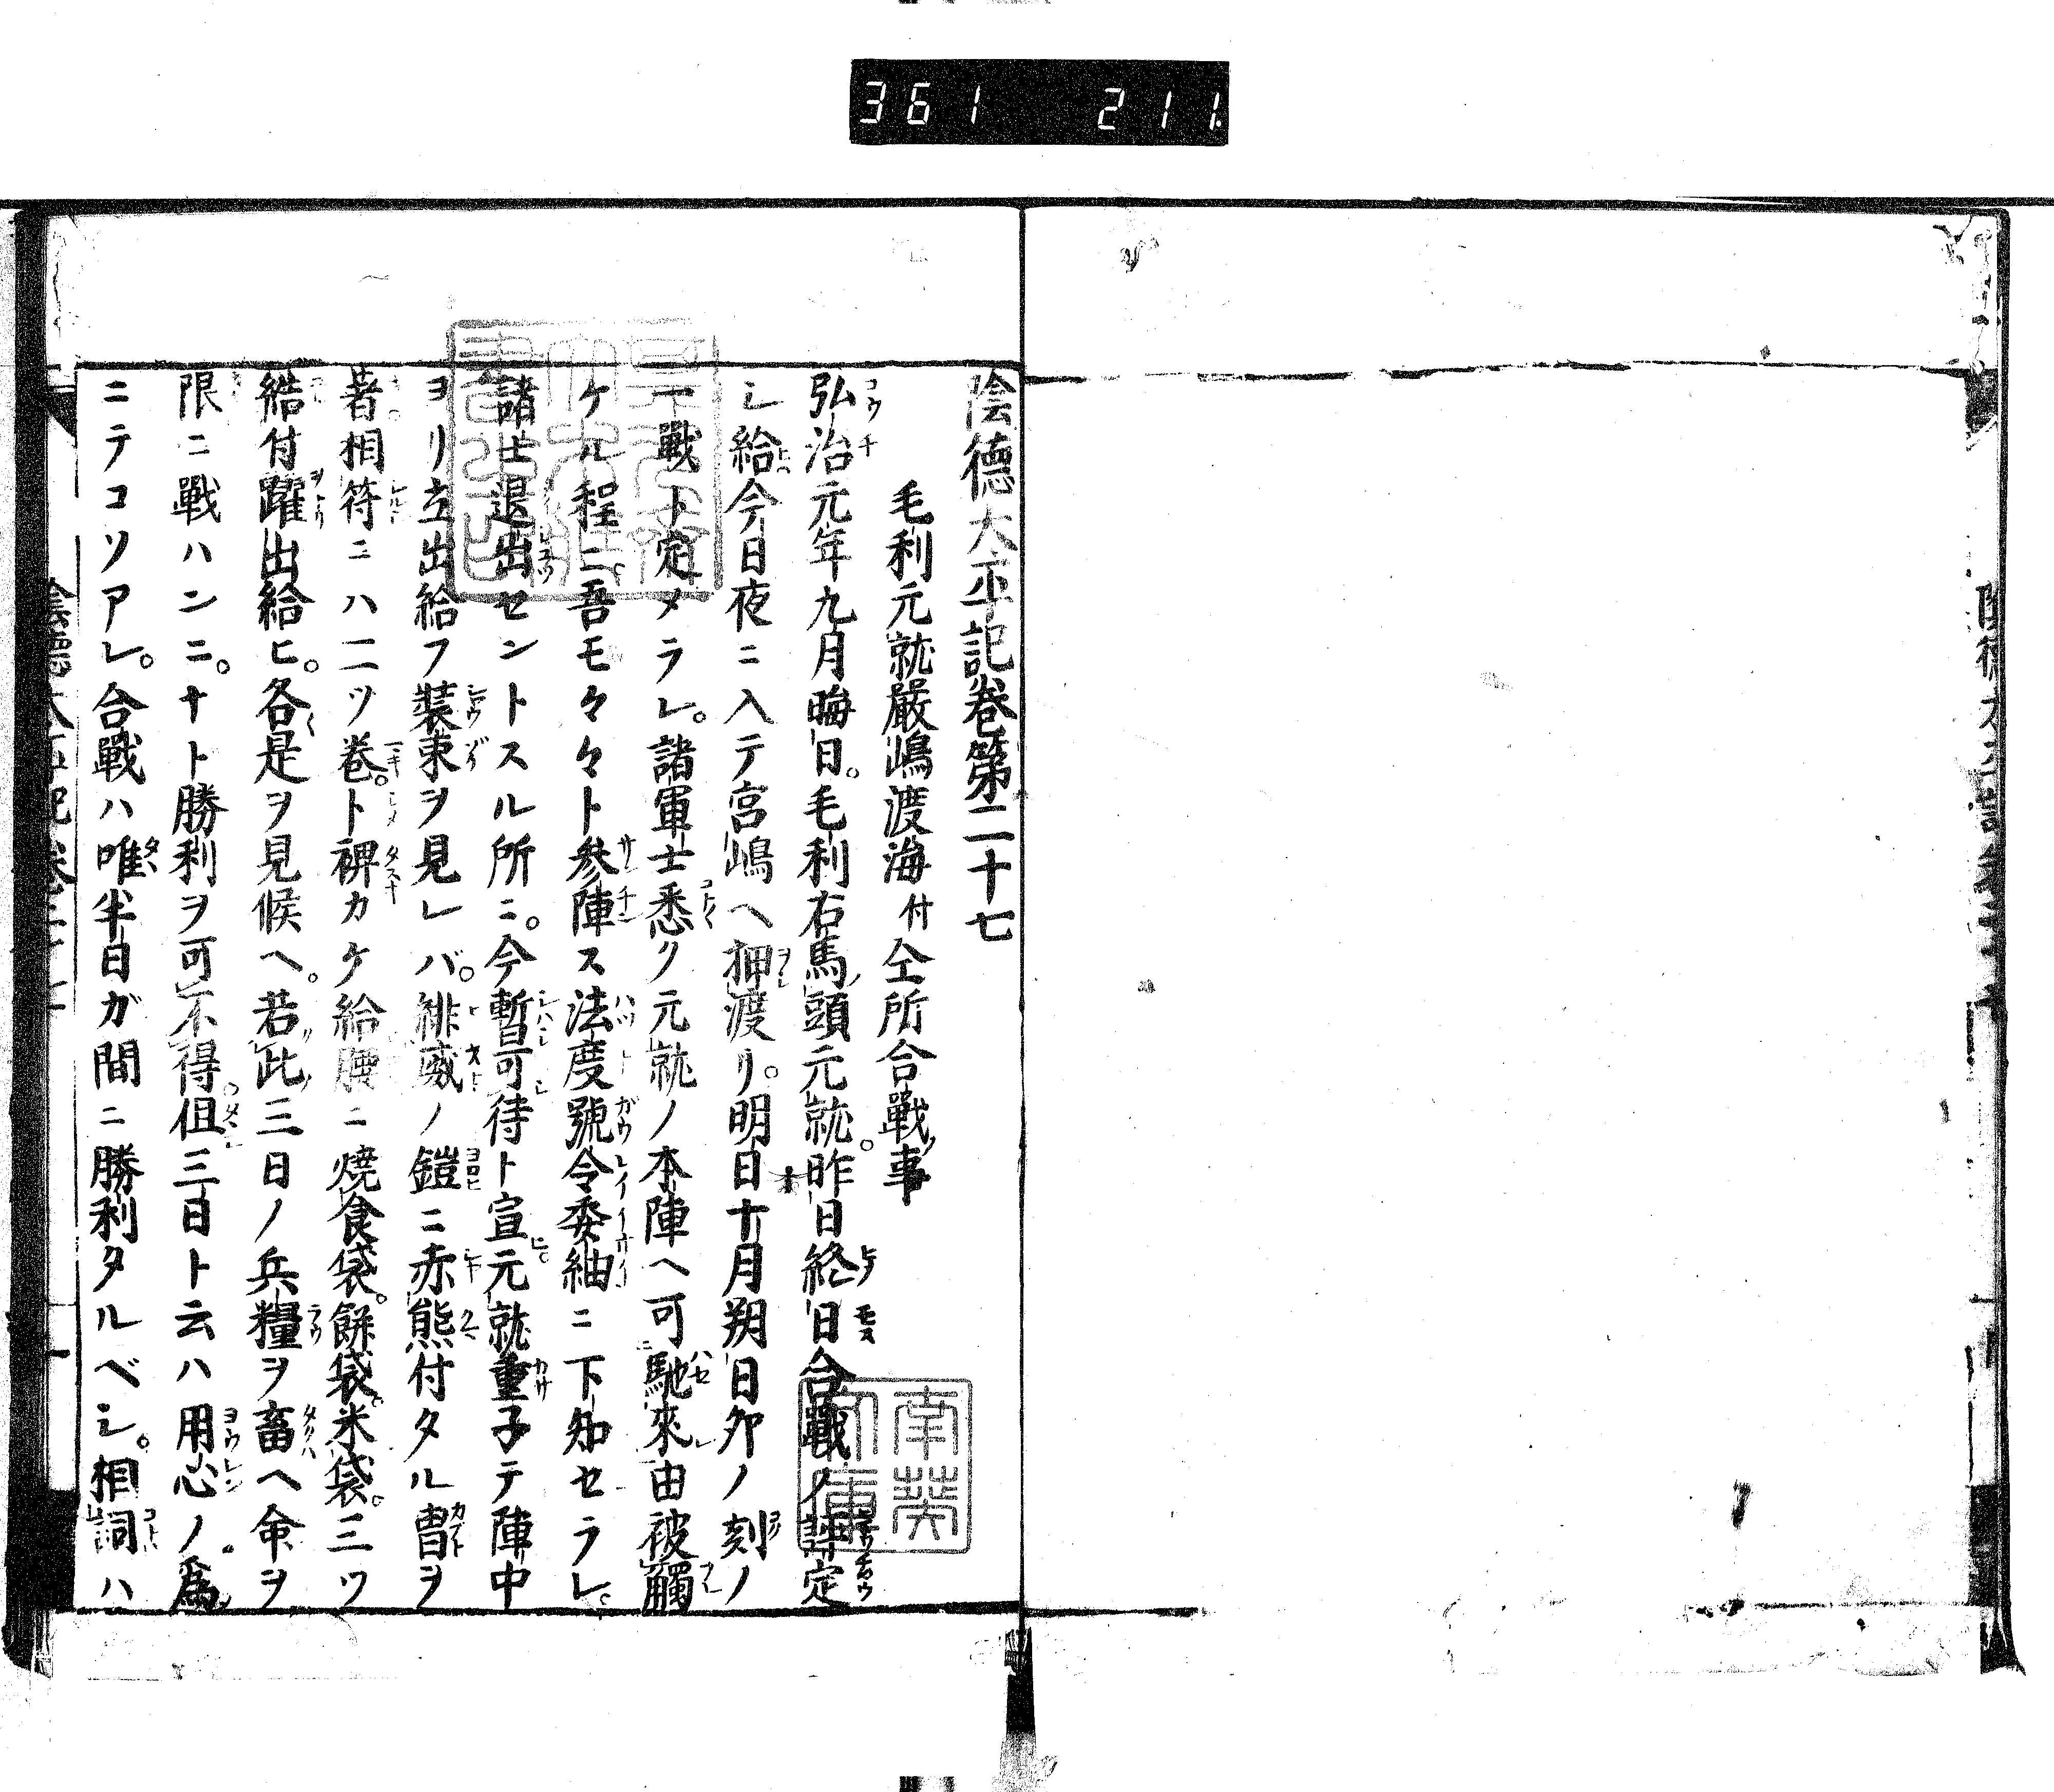 361 211
陰德太平記卷第二十七
毛利元就嚴嶋渡海付仝所合戰事
弘治元年九月晦日。毛利右馬頭元就。昨日終日合戰ノ評定
シ給今日夜ニ入テ宮嶋ヘ押渡リ。明日十月朔日卯ノ刻ノ
一戰ト定メラレ。諸軍士悉ク元就ノ本陣ヘ可馳來由被觸
ケル程ニ吾モ々々ト參陣ス法度號令委紬ニ下知セラレ。
諸士退出セントスル所ニ。今暫可待ト宣元就重子テ陣中
ヨリ立出給フ裝束ヲ見レバ。緋威ノ鎧ニ赤熊付タル冑ヲ
著相符ニハ二ツ卷。ト裨カケ給腰ニ燒食袋。餅袋。米袋。三ツ
緒付躍出給ヒ。各是ヲ見候ヘ。若此三日ノ兵糧ヲ畜ヘ命ヲ
限ニ戰ハンニ。ナト勝利ヲ可不得。但三日ト云ハ用心ノ爲
ニテコソアレ。合戰ハ唯半日ガ間ニ勝利タルベシ。相詞ハ